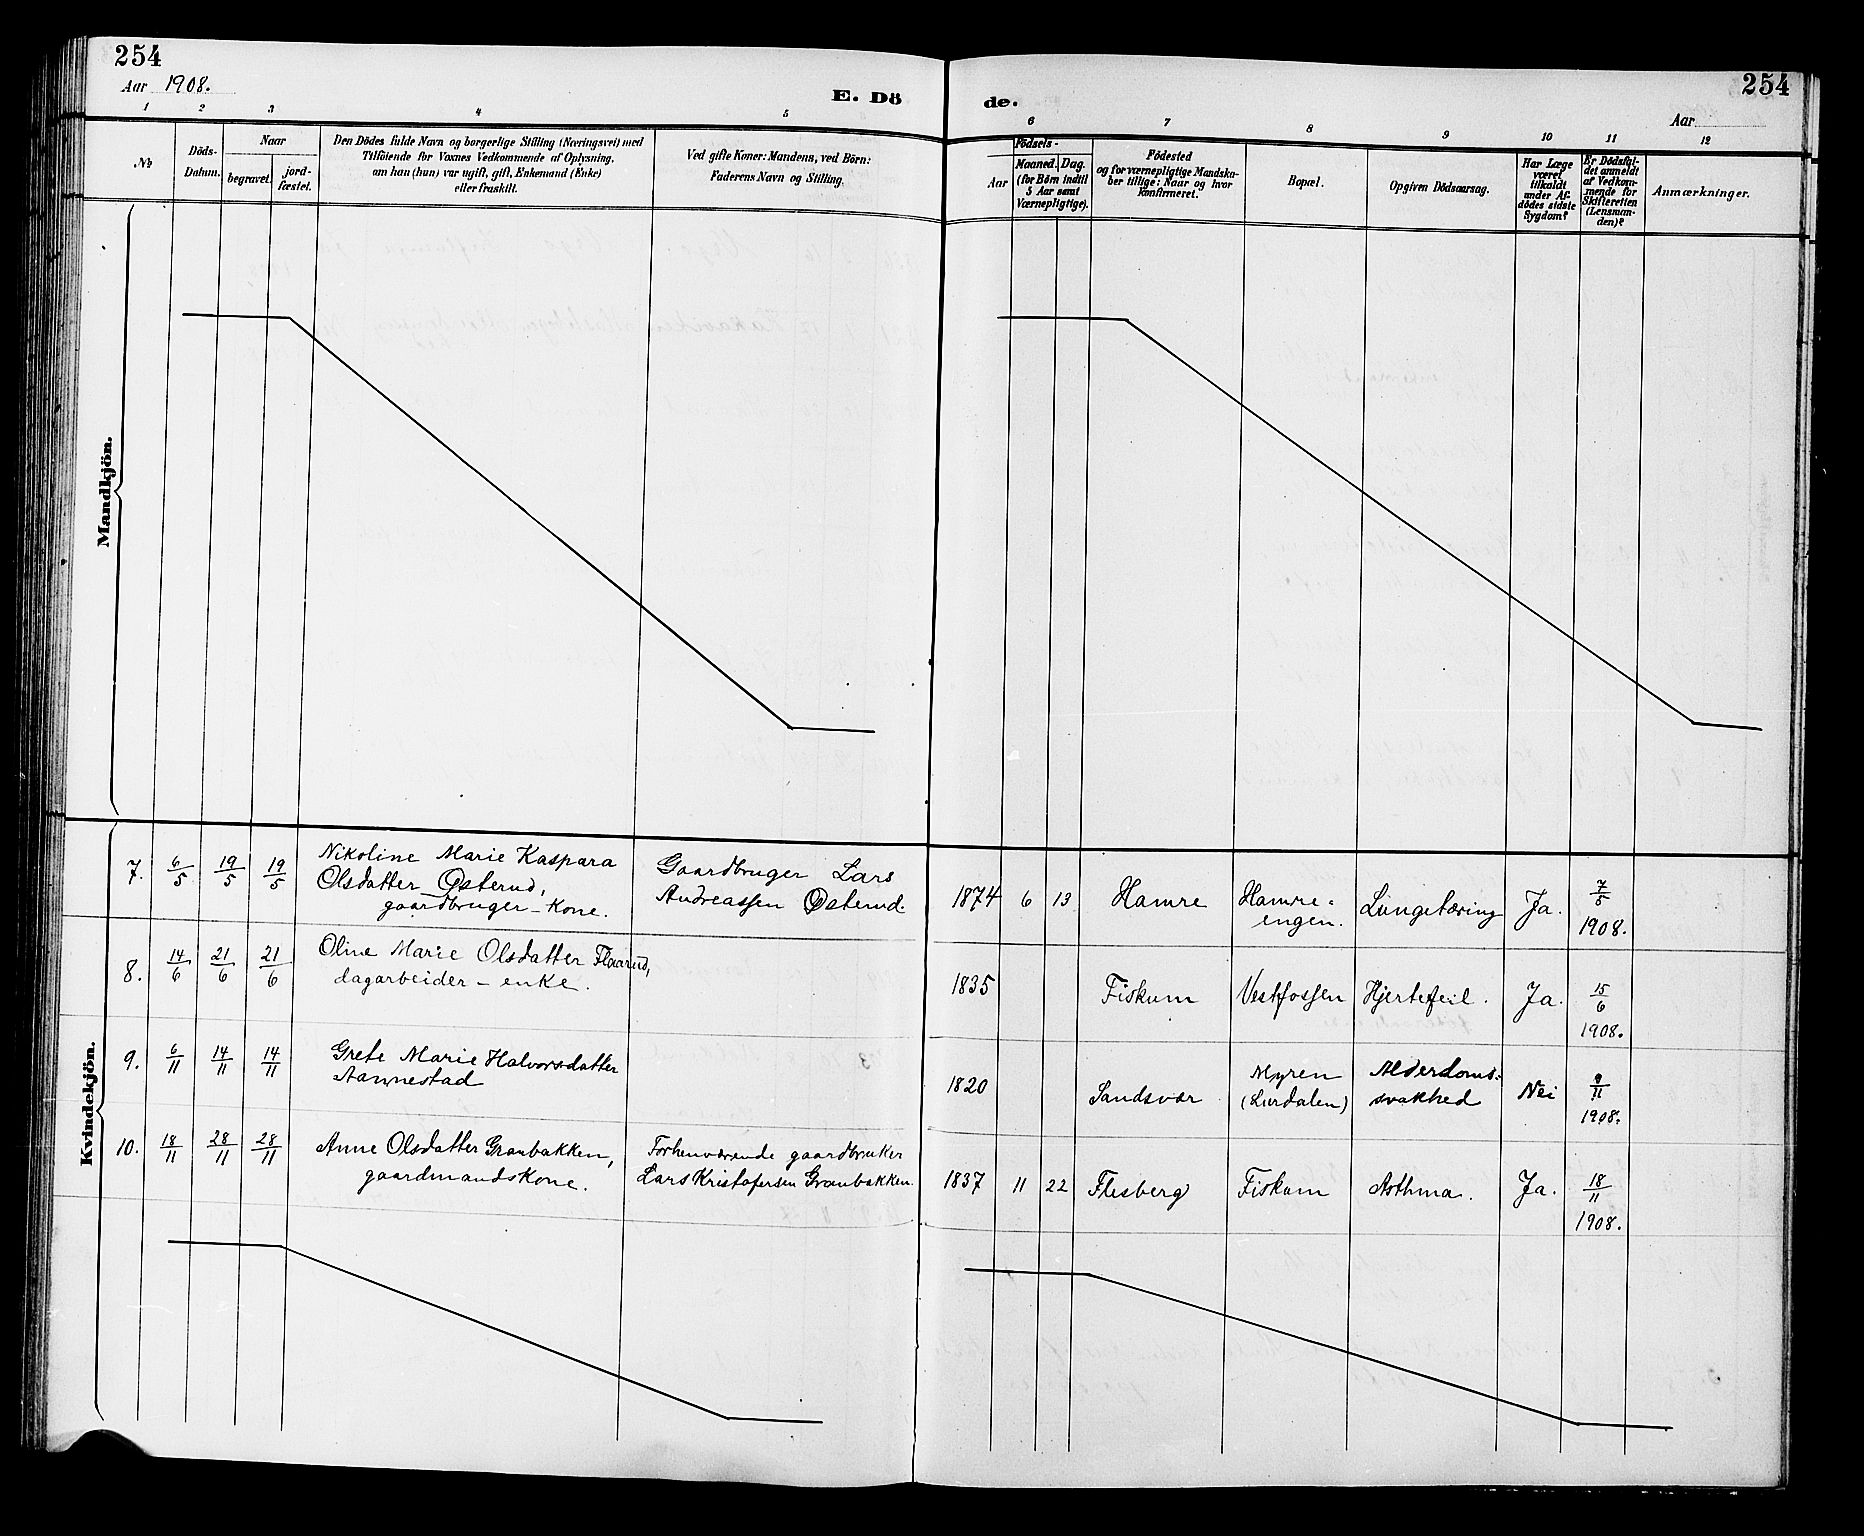 254
Aar 1908.
E. Dö
de.
254
Aar
1 2 3 4 5 6 7 8 9 10 11 12
No
Döds-
Datum.
Naar
begravet.
jord-
fæstet.
Den Dödes fulde Navn og borgerlige Stilling (Næringsvei) med
Tilföiende for Voxnes Vedkommende af Oplysning,
om han (hun) var ugift, gift, Enkemand (Enke)
eller fraskilt.
Ved gifte Koner: Mandens, ved Börn:
Faderens Navn og Stilling.
Födsels-
Aar
Maaned. Dag.
(for Börn indtil
5 Aar samt
Værnepligtige).
Födested
og for værnepligtige Mandska-
ber tillige: Naar og hvor
konfirmeret.
Bopæl.
Opgiven Dödsaarsag.
Har Læge
været
tilkaldt
under Af-
dödes sidste
Sygdom?
Er Dödsfal-
det anmeldt
af Vedkom-
mende for
Skifteretten
(Lensman-
den)?
Anmærkninger.
Mandkjön.
Kvindekjön.
7. 6/5 19/5 19/5
Nikoline Marie Kaspara
Olsdatter Østerud,
gaardbruger-kone.
Gaardbruger Lars
Andreassen Østerud
1874 6 13 Hamre
Hamre-
engen.
Lungetæring
Ja.
7/5
1908.
8. 14/6 21/6 21/6
Oline Marie Olsdatter Flaarud,
dagarbeider - enke.
1835 Fiskum Vestfossen Hjertefeil. Ja.
15/6
1908.
9. 6/11 14/11 14/11
Grete Marie Halvorsdatter
Aannestad
1820 Sandsvær
Myren
(Lurdalen)
Alderdoms-
svakhed
Nei
9/11
1908.
10. 18/11 28/11 28/11
Anne Olsdatter Granbakken,
gaardmandskone.
Forhenværende gaardbruker
Lars Kristofersen Granbakken.
1837 11 22 Flesberg Fiskum Asthma. Ja.
18/11
1908.